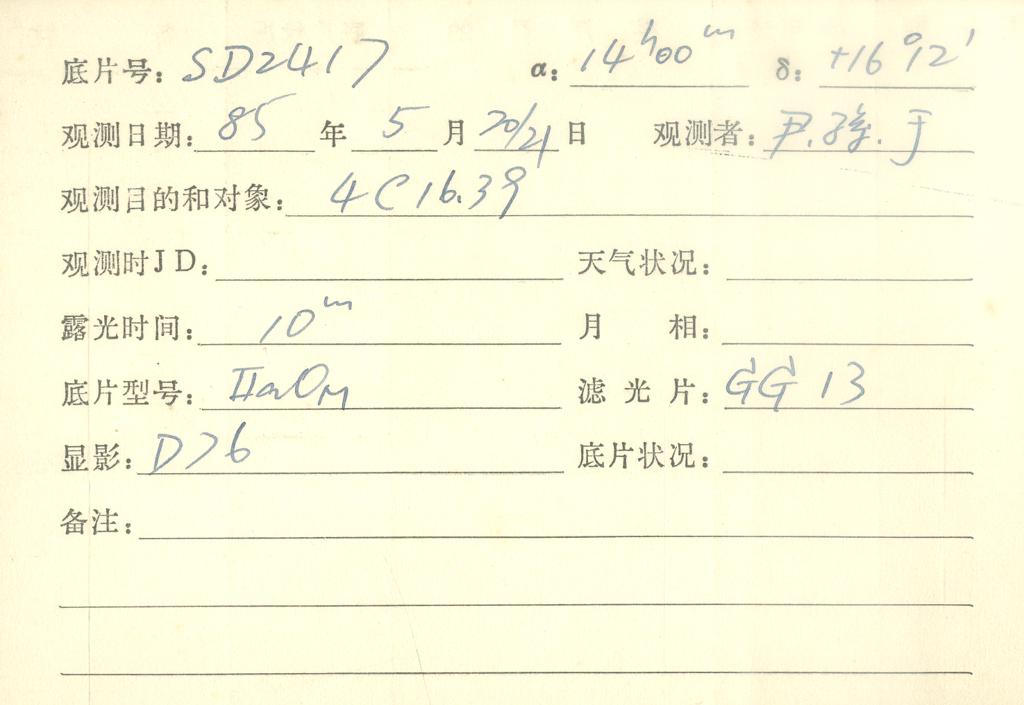 底片号: SD2417 α: 14ʰ00ᵐ δ: +16°12′
观测日期: 85 年 5 月 20/21 日 观测者: 尹.孙.于
观测目的和对象: 4C16.39
观测时JD: 天气状况:
露光时间: 10ᵐ 月 相:
底片型号: IIaO 滤 光 片: GG 13
显影: D76 底片状况:
备注: